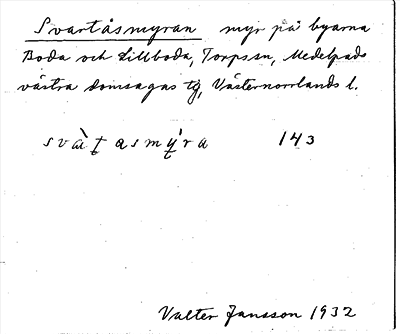 Svartåsmyran myr på byarna
Boda och Lillboda, Torps sn, Medelpads
västra domsagas tg, Västernorrlands l.
svàṭasmỵ́ra 143
Valter Jansson 1932